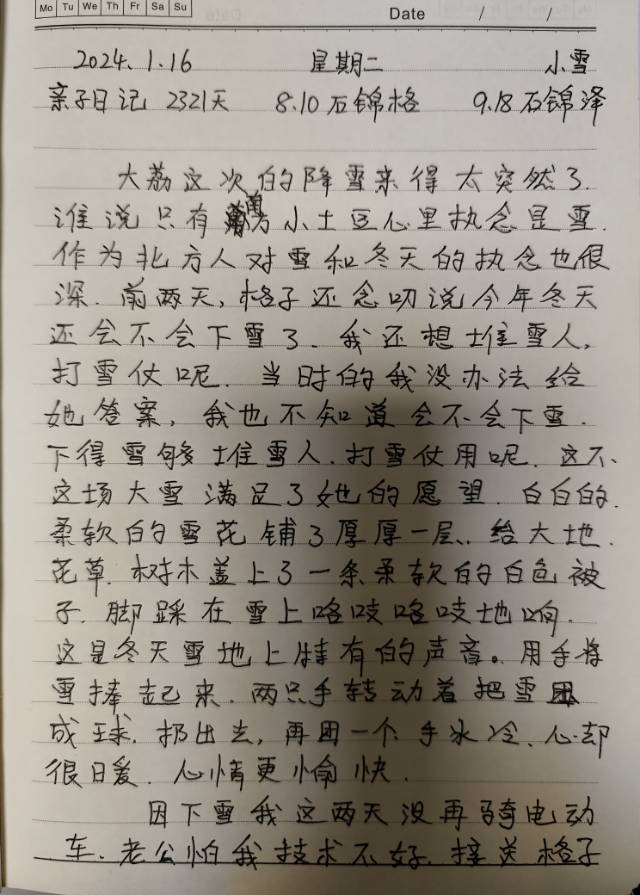 Mo Tu We Th Fr Sa Su
Date / /
2024.1.16 星期二 小雪
亲子日记 2321天 8.10石锦格 9.18石锦泽
大荔这次的降雪来得太突然了.
谁说只有南方小土豆心里执念是雪.
作为北方人对雪和冬天的执念也很
深.前两天,格子还念叨说今年冬天
还会不会下雪了.我还想堆雪人,
打雪仗呢.当时的我没办法给
她答案,我也不知道会不会下雪.
下得雪够堆雪人.打雪仗用呢.这不.
这场大雪满足了她的愿望.白白的.
柔软的雪花铺了厚厚一层.给大地.
花草.树木盖上了一条柔软的白色被
子.脚踩在雪上咯吱咯吱地响.
这是冬天雪地上特有的声音。用手将
雪捧起来.两只手转动着把雪团
成球.扔出去,再团一个.手冰冷.心却
很暖.心情更愉快.
因下雪我这两天没再骑电动
车.老公怕我技术不好.接送格子